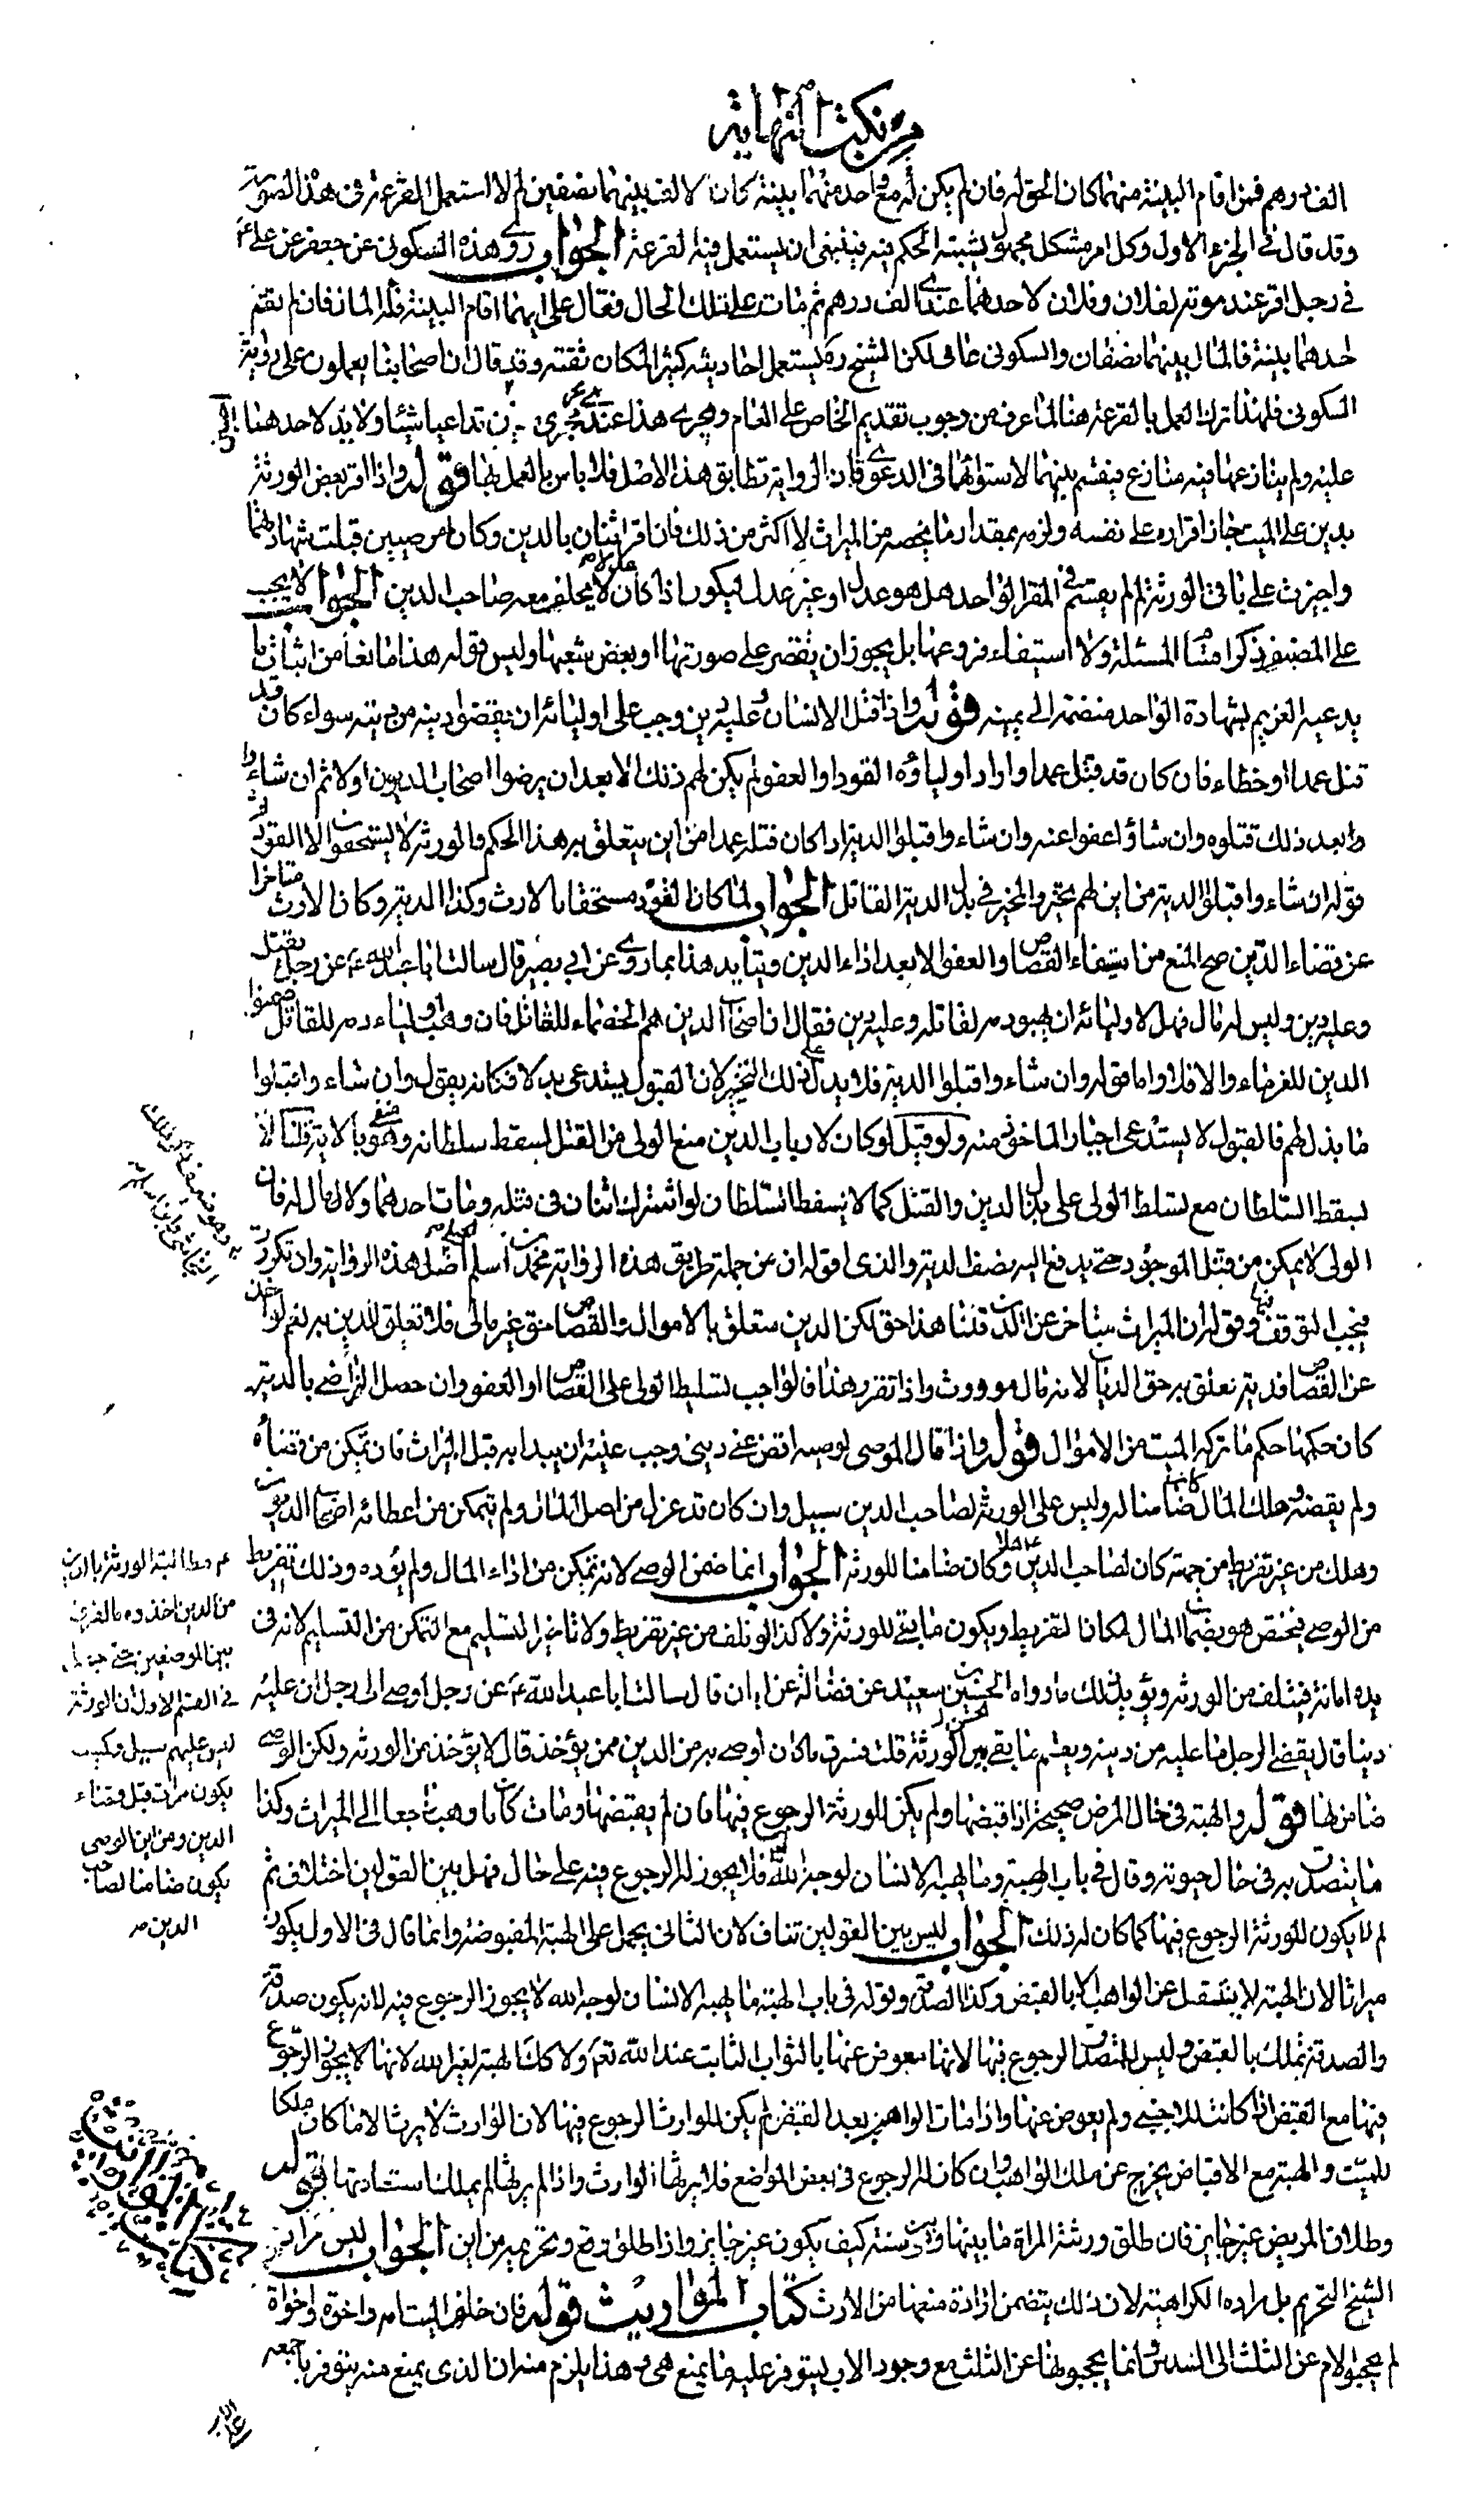 من نكت النهاية
الف درهم فمن اقام البينة منهما كان الحق له فان لم يكن له مع واحد منهما بينة كان الالف بينهما نصفين لم لا استعمل القرعة في هذه الصورة
وقد قال في الجزء الاول وكل امر مشكل مجهول يشتبه الحكم فيه فينبغي ان يستعمل فيه القرعة الجواب روى هذه السكوني عن جعفر عن علي ع
في رجل اقر عند موته لفلان وفلان لاحدهما عندي الف درهم ثم مات على تلك الحال فقال علي ايهما اقام البينة فله المال فان لم يقم
احدهما بينة فالمال بينهما نصفان والسكوني عامي لكن الشيخ ره يستعمل احاديثه كثيرا لمكان ثقته وقد قال ان اصحابنا يعملون على رواية
السكوني فلهذا ترك العمل بالقرعة هنا لما عرف من وجوب تقديم الخاص على العام ويجري هذا عندي مجرى من تداعيا شيئا ولا يد لاحدهما
عليه ولم ينازعهما فيه منازع فيقسم بينهما لاستوائهما في الدعوى فان الرواية تطابق هذا الاصل فلا باس بالعمل بها قوله واذا اقر بعض الورثة
بدين على الميت جاز اقراره على نفسه ولزمه بمقدار ما يخصه من الميراث لا اكثر من ذلك فان اقر اثنان بالدين وكانا مرضيين قبلت شهادتهما
واجيزت على باقي الورثة لم لم يقسم في المقر الواحد هل هو عدل او غير عدل ليكون اذا كان عدلا يحلف معه صاحب الدين الجواب لا يجب
على المصنف ذكر اقسام المسئلة ولا استيفاء فروعها بل يجوز ان يقتصر على صورتها او بعض شعبها وليس قوله هذا مانعا من اثبات ما
يدعيه الغريم بشهادة الواحد منضمة الى يمينه قوله واذا قتل الانسان وعليه دين وجب على اوليائه ان يقضوا دينه من ديته سواء كان قد
قتل عمدا او خطاء فان كان قد قتل عمدا واراد اولياؤه القود او العفو لم يكن لهم ذلك الا بعد ان يرضوا اصحاب الديون اولا ثم ان شاءوا
بعد ذلك قتلوه وان شاؤا عفوا عنه وان شاءوا قبلوا الدية اذا كان قتله عمدا من اين يتعلق به هذا الحكم والورثة لا يستحقون الا القود
قوله ان شاءوا قبلوا الدية من اين لهم تخير والمخير في بذل الدية القاتل الجواب لما كان القود مستحقا بالارث وكذا الدية وكان الارث متاخرا
عن قضاء الدين صح المنع من استيفاء القصاص او العفو الا بعد اداء الدين ويتايد هذا بما روى عن ابي بصير قال سالت ابا عبد الله ع عن رجل يقتل
وعليه دين وليس له مال فهل لاوليائه ان يهبوا دمه لقاتله وعليه دين فقال ان اصحاب الدين هم الخصماء للقاتل فان وهب اولياء دمه للقاتل ضمنوا
الدين للغرماء والا فلا واما قوله وان شاءوا قبلوا الدية فلا يدل على ذلك التخير لان القبول يستدعي بذلا فكانه يقول وان شاءوا قبلوا
ما بذل لهم فالقبول لا يستدعي اجبار الماخوذ منه ولو قيل لو كان لارباب الدين منع الولي من القتل لسقط سلطانه وهو منفي بالاية قلنا لا
يسقط السلطان مع تسلط الولي على بذل الدين والقتل كما لا يسقط السلطان لو اشترك اثنان في قتله ومات احدهما ولا مال له فان
الولي لا يمكن من قتل الموجود حتى يدفع اليه نصف الدية والذي اقوله ان من جملة طريق هذه الرواية محمد بن اسلم اصل هذه الرواية وان تكررت
فيجب التوقف فيها وقوله ان الميراث يتاخر عن الدين قلنا هذا حق لكن الدين متعلق بالاموال والقصاص حق غير مالي فلا تعلق للدين به نعم لو اخذ
عن القصاص دية تعلق به حق الديان لانه مال موروث واذا تقرر هذا فالواجب تسليط الولي على القصاص او العفو وان حصل التراضي بالدية
كان حكمها حكم ما تركه الميت من الاموال قوله واذا قال الموصي لوصيه اقض عني ديني وجب عليه ان يبدا به قبل الميراث فان تمكن من قضاه
ولم يقضه وهلك المال كان ضامنا له وليس على الورثة لصاحب الدين سبيل وان كان قد عزله من اصل المال ولم يتمكن من اعطائه اصحاب الديون
وهلك من غير تفريط من جهته كان لصاحب الدين وكان ضامنا للورثة الجواب انما ضمن الوصي لانه تمكن من اداء المال ولم يؤده وذلك تفريط
من الوصي فيختص هو بضمان المال لمكان التفريط ويكون ما بقي للورثة ولا كذا لو تلف من غير تفريط ولا تاخير التسليم مع التمكن من التسليم لانه في
يده امانة فيتلف من الورثة ويؤيد ذلك ما رواه الحسين بن سعيد عن فضالة عن ابان قال سالت ابا عبد الله ع عن رجل اوصى الى رجل ان عليه
دينا قال يقضي الرجل ما عليه من دينه ويقسم ما بقي بين الورثة قلت فسرق ما كان اوصى به من الدين ممن يؤخذ قال لا يؤخذ من الورثة ولكن الوصي
ضامن لها قوله والهبة في حال المرض صحيحة اذا قبضها ولم يكن للورثة الرجوع فيها فان لم يقبضها ومات كان ما وهب راجعا الى الميراث وكذا
ما يتصدق به في حال حيوته وقال في باب الهبة وما يهبه الانسان لوجه الله فلا يجوز له الرجوع فيه على حال فهل بين القولين اختلاف ثم
لم لا يكون للورثة الرجوع فيها كما كان له ذلك الجواب ليس بين القولين تناف لان الثاني يحمل على الهبة المقبوضة وانما قال في الاول يكون
ميراثا لان الهبة لا ينتقل عن الواهب الا بالقبض وكذا الصدقة وقوله في باب الهبة ما يهبه الانسان لوجه الله لا يجوز الرجوع فيه لانه يكون صدقة
والصدقة تملك بالقبض وليس للمتصدق الرجوع فيها لانها معوض عنها بالثواب الثابت عند الله تع ولا كك الهبة لغير الله لانها لا يجوز الرجوع
فيها مع القبض اذا كانت للاجنبي ولم يعوض عنها واذا مات الواهب بعد القبض لم يكن للوارث الرجوع فيها لان الوارث لا يرث الا ما كان ملكا
للميت والهبة مع الاقباض يخرج عن ملك الواهب وان كان له الرجوع في بعض المواضع فلا يرثها الوارث واذا لم يرثها لم يملك استعادتها قوله
وطلاق المريض غير جايز فان طلق ورثته المراة ما بينها وبين سنة كيف يكون غير جايز واذا طلق وقع وتحريمه من اين الجواب ليس مراد
الشيخ التحريم بل مراده الكراهية لان ذلك يتضمن ارادة منعها من الارث كتاب المواريث قوله فان خلف الميت امه واخوة واخواة
لم يحجبوا الام عن الثلث الى السدس وانما يحجبونها عن الثلث مع وجود الاب ليتوفر عليه ما يمنع هي وهذا يلزم منه ان الذي يمنع منه يتوفر باجمعه
على الاب
مطالبة الورثة بالدين
من الدين اخذوه بالفرق
بين الموضعين
في القسم الاول ان الورثة
ليس عليهم سبيل وكيف
يكون ميراث قبل قضاء
الدين ومن اين الوصي
يكون ضامنا لصاحب
الدين